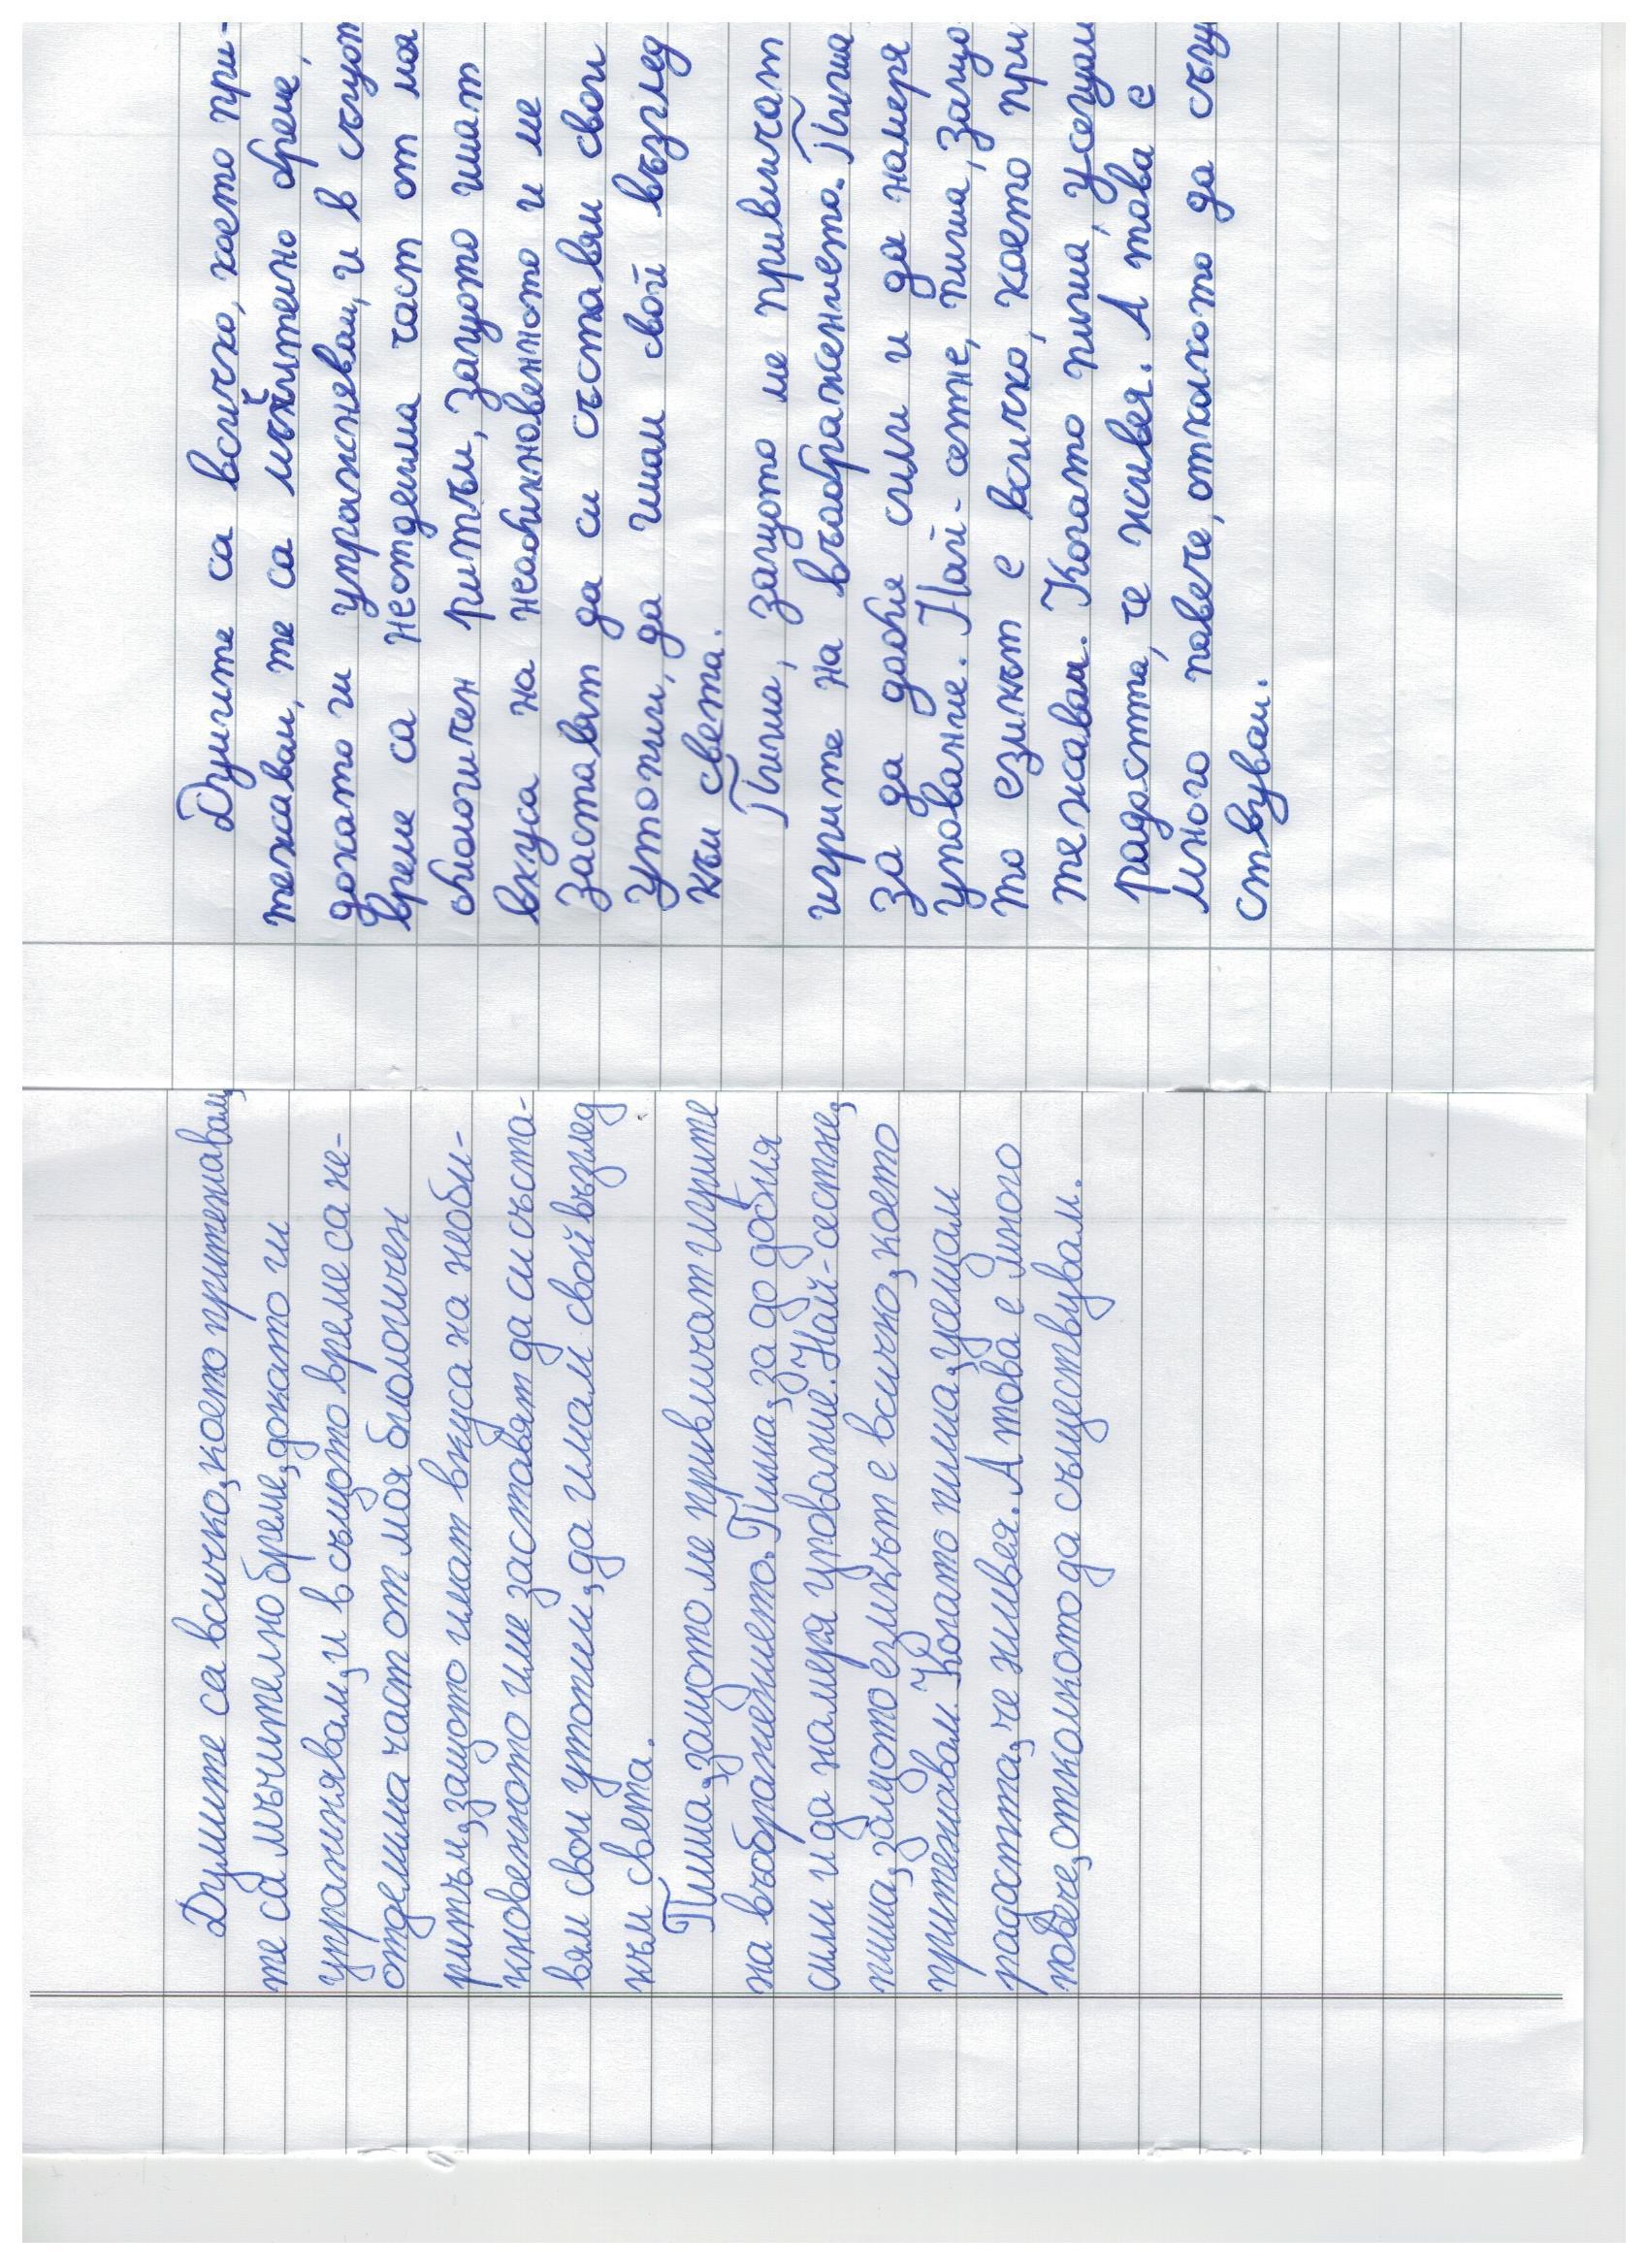 Думите са всичко, което притежавам,
те са мъчително бреме, докато ги
упражнявам, и в същото време са не-
отделима част от моя биологичен
ритъм, защото имат вкуса на необи-
кновеното и ме заставят да си съста-
вям свои утопии, да имам свой възглед
към света.
Пиша, защото ме привличат игрите
на въображението. Пиша, за да добия
сили и да намеря упование. Най-сетне,
пиша, защото езикът е всичко, което
притежавам. Когато пиша, усещам
радостта, че живея. А това е много
повече, отколкото да съществувам.
Думите са всичко, което при-
тежавам, те са мъчително бреме,
докато ги упражневам, и в същот
време са неотделима част от моя
биологичен ритъм, защото имат
вкуса на необикновенното и ме
заставят да си съставям свои
утопии, да имам свой възглед
към света.
Пиша, защото ме привличат
игрите на въображението. Пиша
за да добия сили и да намеря
упование. Най-сетне, пиша, защо
то езикът е всичко, което при
тежавам. Когато пиша, усещам
радостта, че живея. А това е
много повече, отколкото да същ
ствувам.